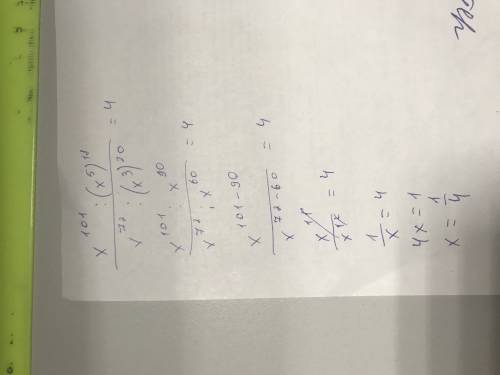 x¹⁰¹ : (x⁵)¹⁸ / x⁷² : (x³)²⁰ = 4
x¹⁰¹ : x⁹⁰ / x⁷² : x⁶⁰ = 4
x¹⁰¹⁻⁹⁰ / x⁷²⁻⁶⁰ = 4
x¹¹ / x¹² = 4
1/x = 4
4x = 1
x = 1/4